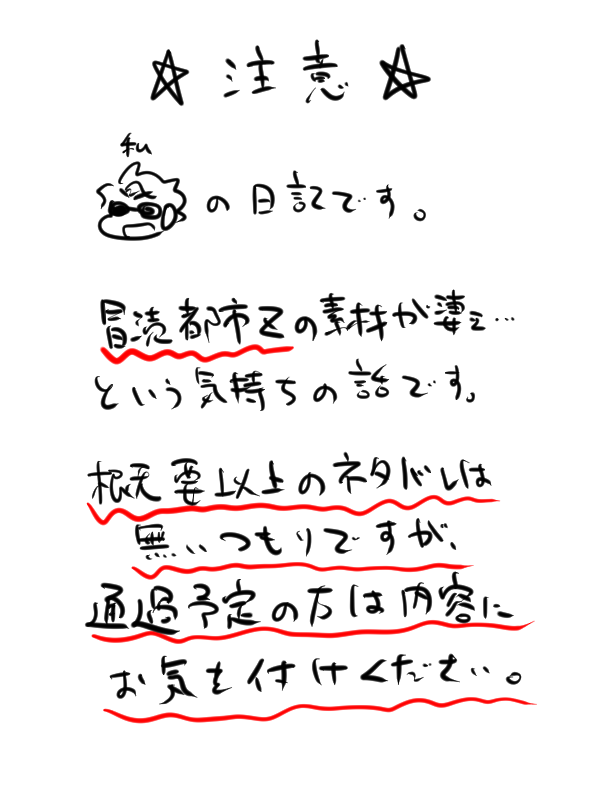 ☆ 注意 ☆
私
の日記です。
冒涜都市Zの素材が凄ェ…
という気持ちの話です。
概要以上のネタバレは
無いつもりですが、
通過予定の方は内容に
お気を付けください。